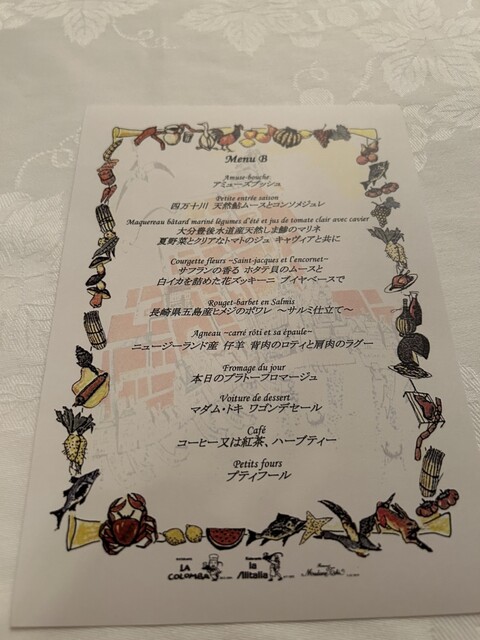 Menu B
Amuse-bouche
アミューズブッシュ
Petite entrée saison
四万十川 天然鮎ムースとコンソメジュレ
Maquereau bâtard mariné légumes d'été et jus de tomate clair avec cavier
大分豊後水道産天然しま鯵のマリネ
夏野菜とクリアなトマトのジュ キャヴィアと共に
Courgette fleurs ~Saint-jacques et l'encornet~
サフランの香る ホタテ貝のムースと
白イカを詰めた花ズッキーニ ブイヤベースで
Rouget-barbet en Salmis
長崎県五島産ヒメジのポワレ ~サルミ仕立て~
Agneau ~carré rôti et sa épaule~
ニュージーランド産 仔羊 背肉のロティと肩肉のラグー
Fromage du jour
本日のプラトーフロマージュ
Voiture de dessert
マダム・トキ ワゴンデセール
Café
コーヒー又は紅茶、ハーブティー
Petits fours
プティフール
LA COLOMBA
la Alitalia